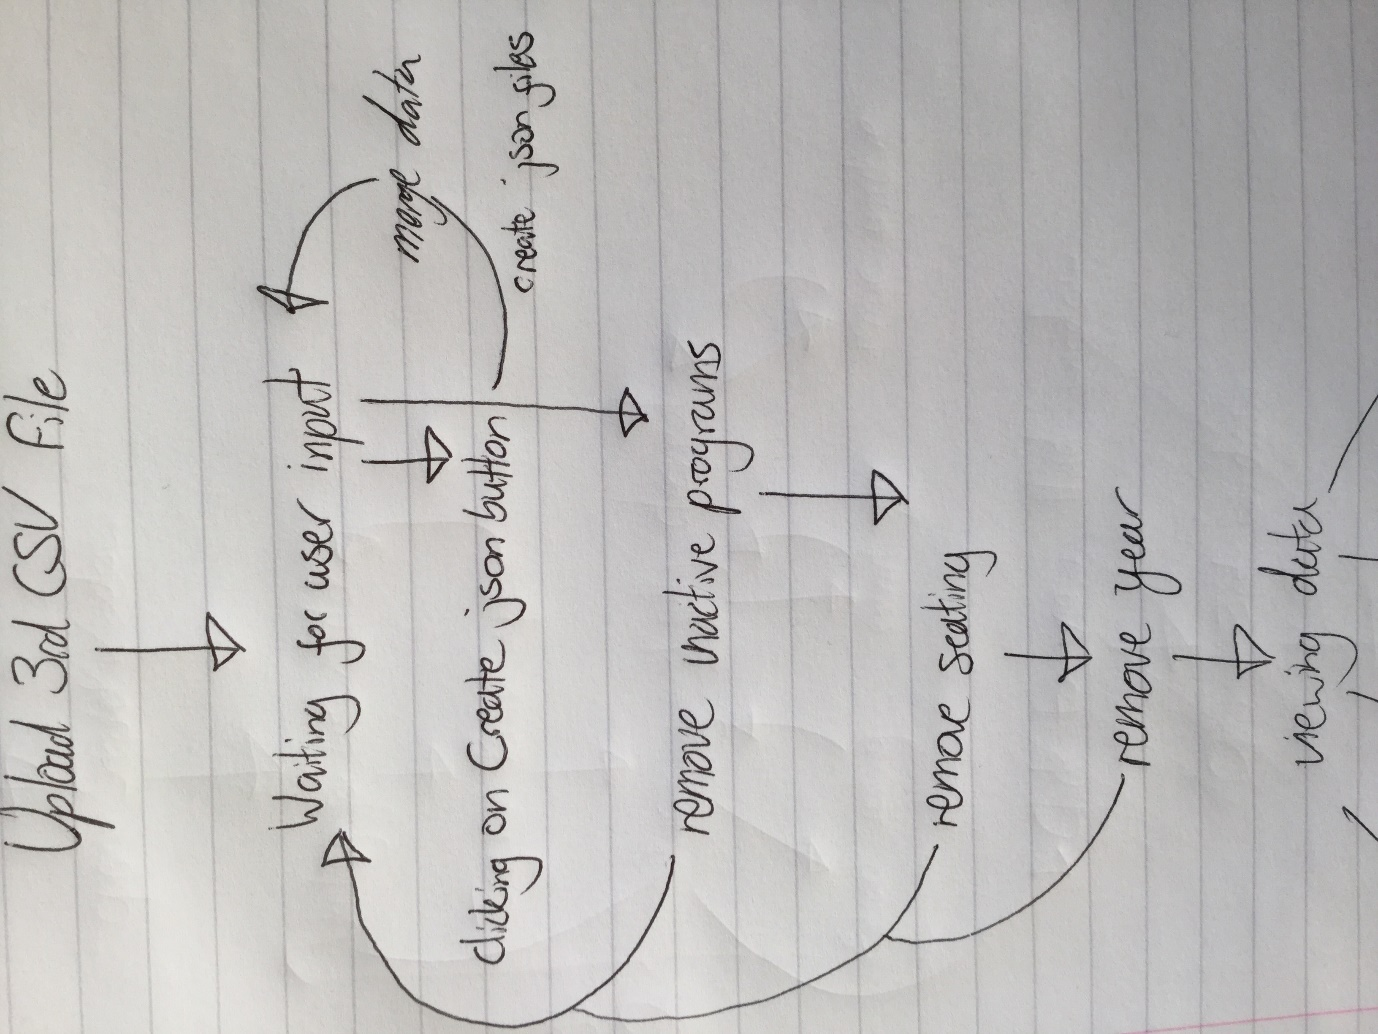 Upload 3rd CSV file
Waiting for user input
merge data
clicking on Create json button
create json files
remove inactive programs
remove seating
remove year
viewing data